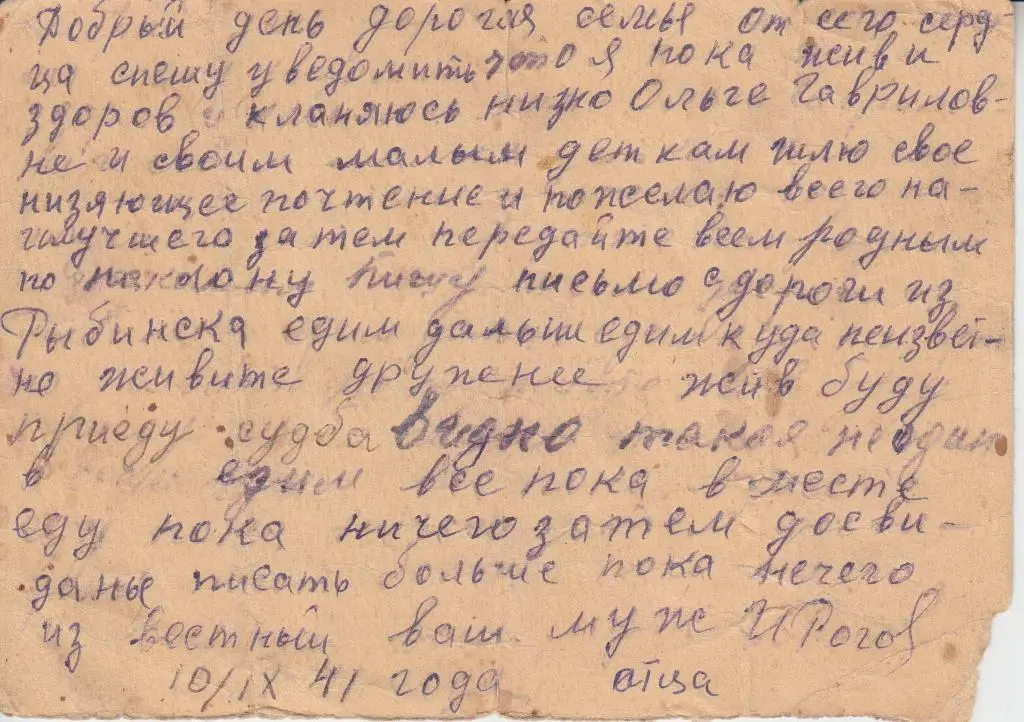 Добрый день дорогая семья от сего серд-
ца спешу уведомить что я пока жив и
здоров и кланяюсь низко Ольге Гаврилов-
не и своим малым деткам шлю свое
низяющее почтение и пожелаю всего на-
илучшего затем передайте всем родным
по поклону пишу письмо здороги из
Рыбинска едим дальши едим куда неизвес-
но живите дружнее жив буду
приеду судба видно такая неодин
в едим все пока вместе
еду пока ничего затем досви-
данье писать больше пока нечего
из вестный ваш муж И Рогов
10/IX 41 года отца